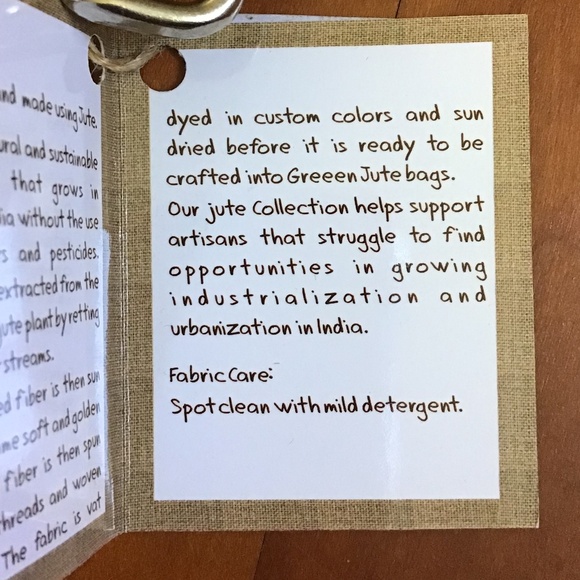 and made using Jute.
and sustainable
that grows in
without the use
and pesticides.
extracted from the
plant by retting
streams.
fiber is then sun
soft and golden
fiber is then spun
threads and woven
The fabric is vat
dyed in custom colors and sun
dried before it is ready to be
crafted into Greeen Jute bags.
Our jute Collection helps support
artisans that struggle to find
opportunities in growing
industrialization and
urbanization in India.
Fabric Care:
Spot clean with mild detergent.